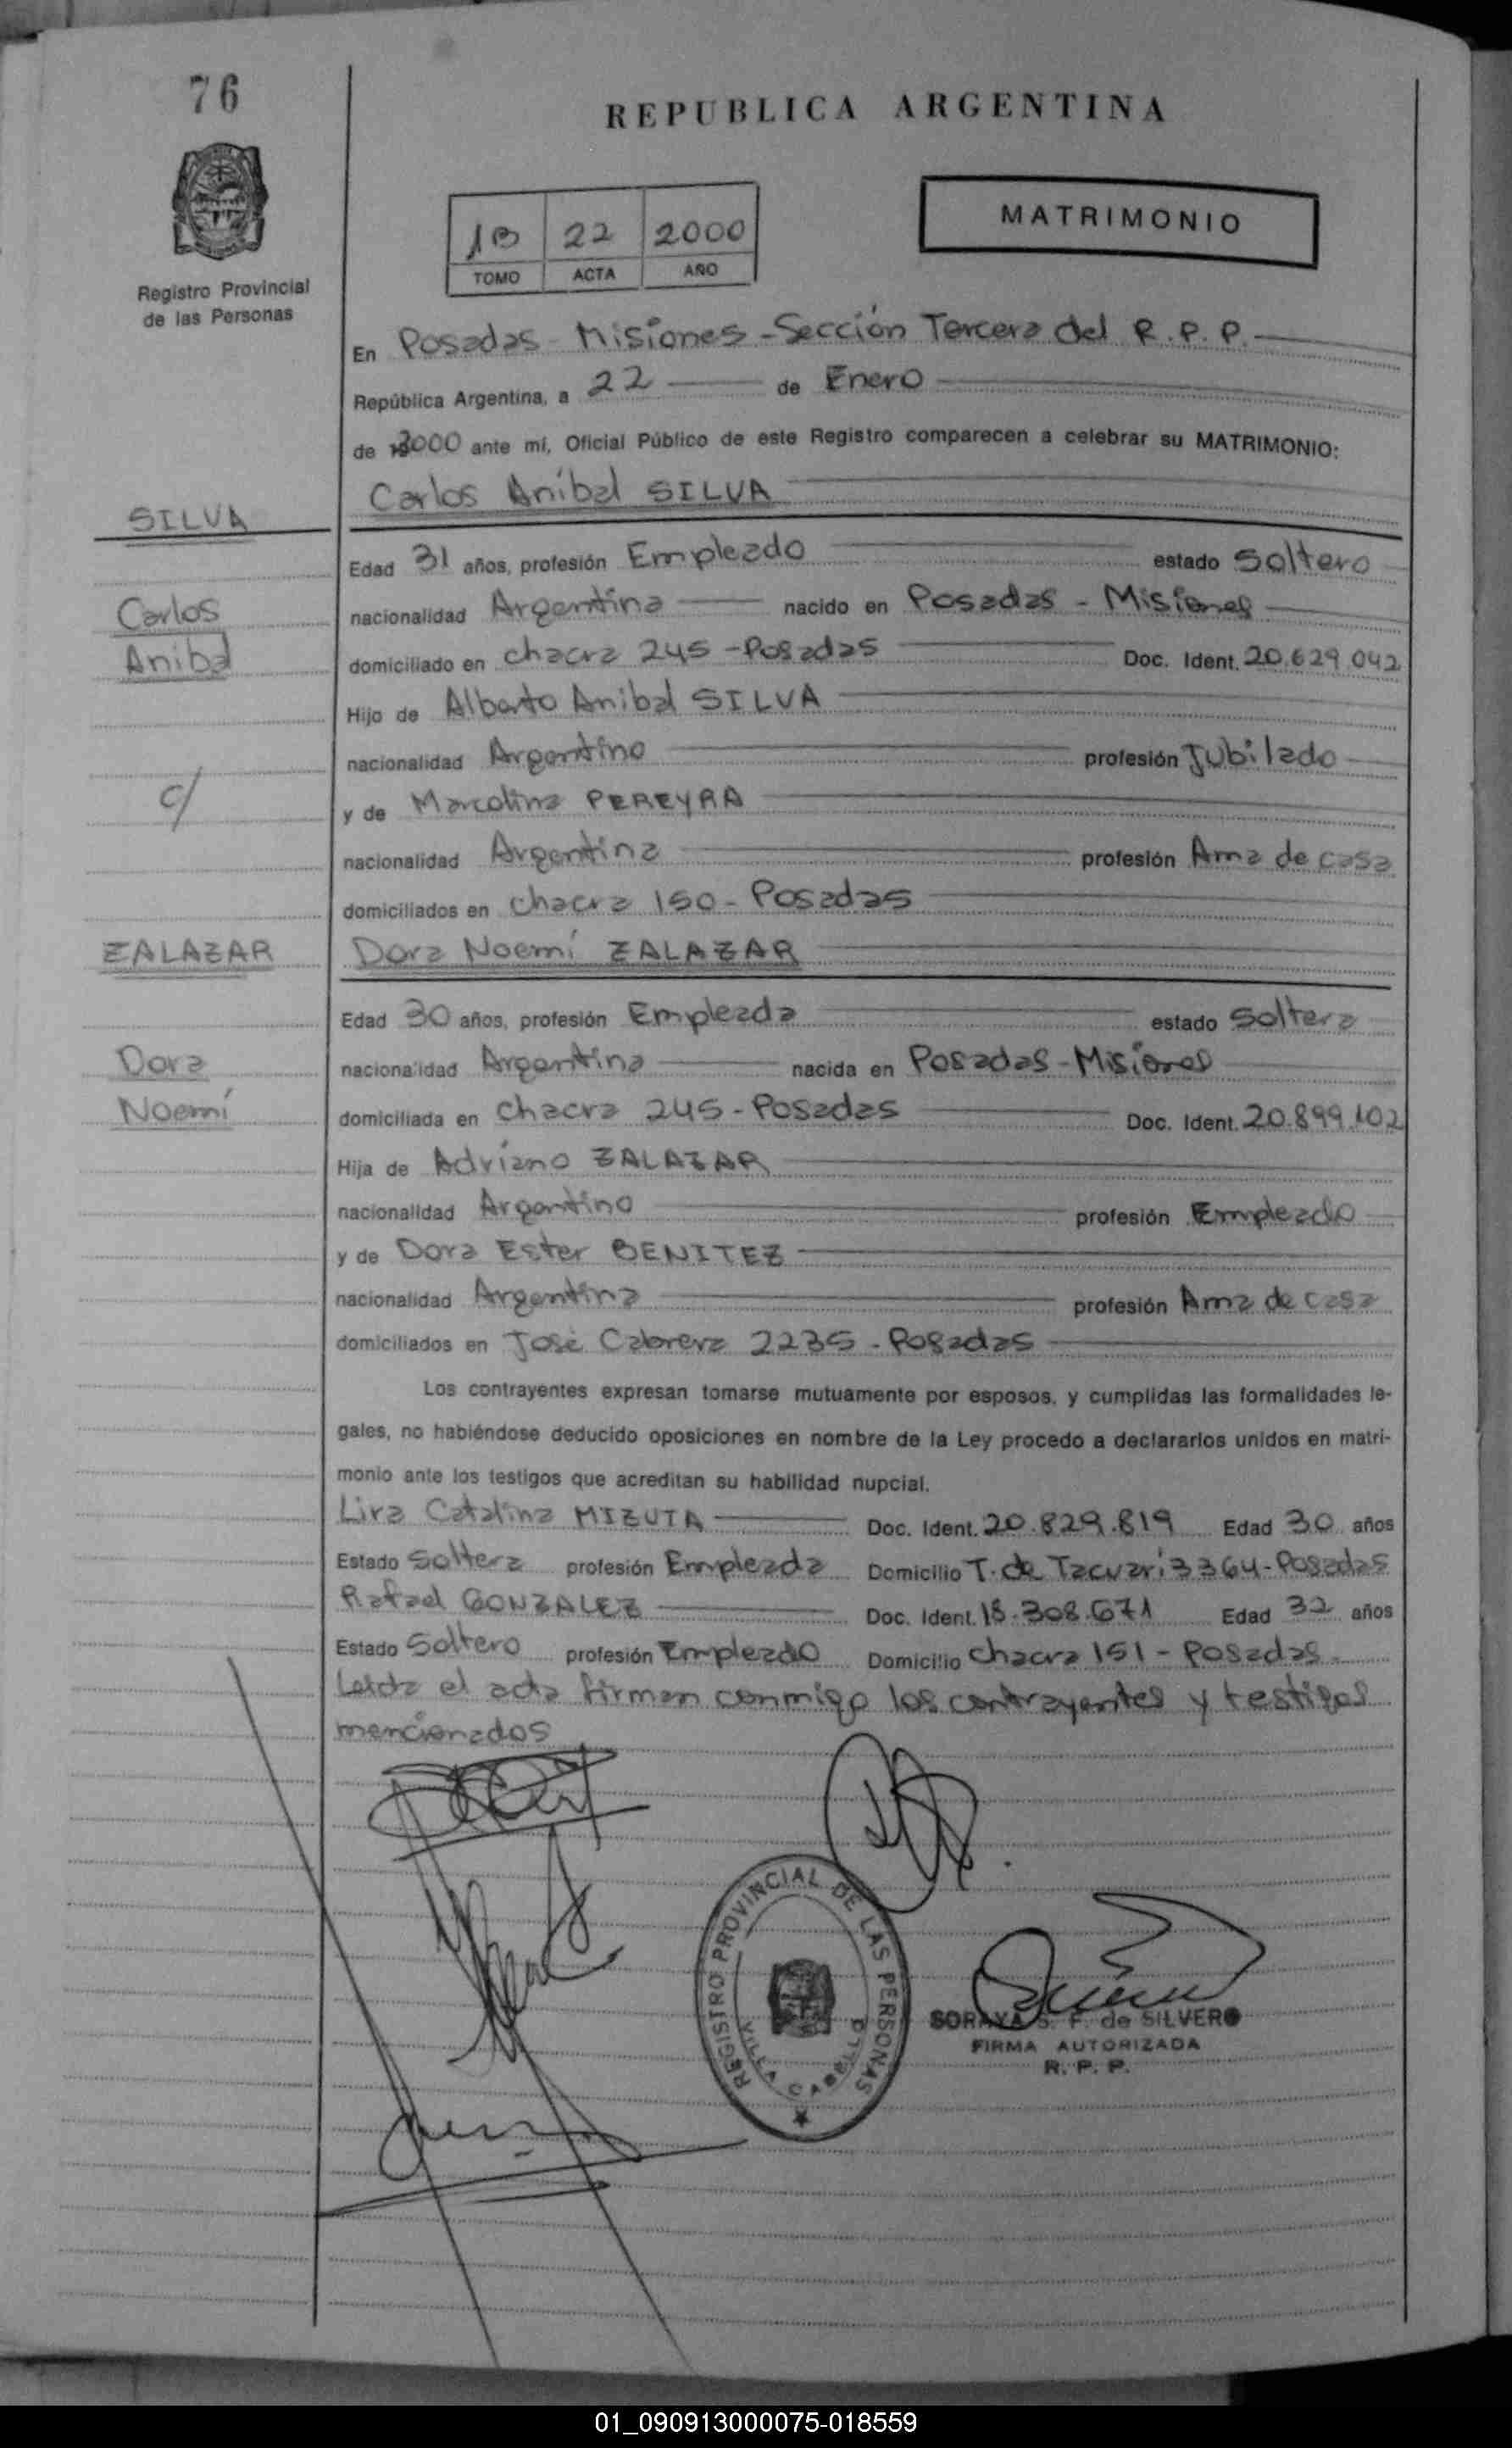 76
REPUBLICA ARGENTINA
1B 22 2000
TOMO ACTA AÑO
MATRIMONIO
Registro Provincial
de las Personas
En Posadas - Misiones - Sección Tercera del R.P.P.
República Argentina, a 22 de Enero
de 2000 ante mí, Oficial Público de este Registro comparecen a celebrar su MATRIMONIO:
SILVA
Carlos Anibal SILVA
Edad 31 años, profesión Empleado estado Soltero
Carlos
nacionalidad Argentina nacido en Posadas - Misiones
Anibal
domiciliado en chacra 245 - Posadas Doc. Ident. 20.629.042
Hijo de Alberto Anibal SILVA
nacionalidad Argentino profesión Jubilado
c/
y de Marcelina PEREYRA
nacionalidad Argentina profesión Ama de casa
domiciliados en chacra 150 - Posadas
ZALAZAR
Dora Noemí ZALAZAR
Edad 30 años, profesión Empleada estado Soltera
Dora
nacionalidad Argentina nacida en Posadas - Misiones
Noemí
domiciliada en chacra 245 - Posadas Doc. Ident. 20.899.102
Hija de Adriano ZALAZAR
nacionalidad Argentino profesión Empleado
y de Dora Ester BENITEZ
nacionalidad Argentina profesión Ama de casa
domiciliados en José Cabrera 2235 - Posadas
Los contrayentes expresan tomarse mutuamente por esposos, y cumplidas las formalidades le-
gales, no habiéndose deducido oposiciones en nombre de la Ley procedo a declararlos unidos en matri-
monio ante los testigos que acreditan su habilidad nupcial.
Lira Catalina MIZUTA Doc. Ident. 20.829.819 Edad 30 años
Estado Soltera profesión Empleada Domicilio T. de Tacuari 3364 - Posadas
Rafael GONZALEZ Doc. Ident. 18.308.671 Edad 32 años
Estado Soltero profesión Empleado Domicilio chacra 151 - Posadas
Leída el acta firman conmigo los contrayentes y testigos
mencionados
REGISTRO PROVINCIAL DE LAS PERSONAS
VILLA CABELLO
SORAYA S. F. de SILVERO
FIRMA AUTORIZADA
R. P. P.
01_090913000075-018559